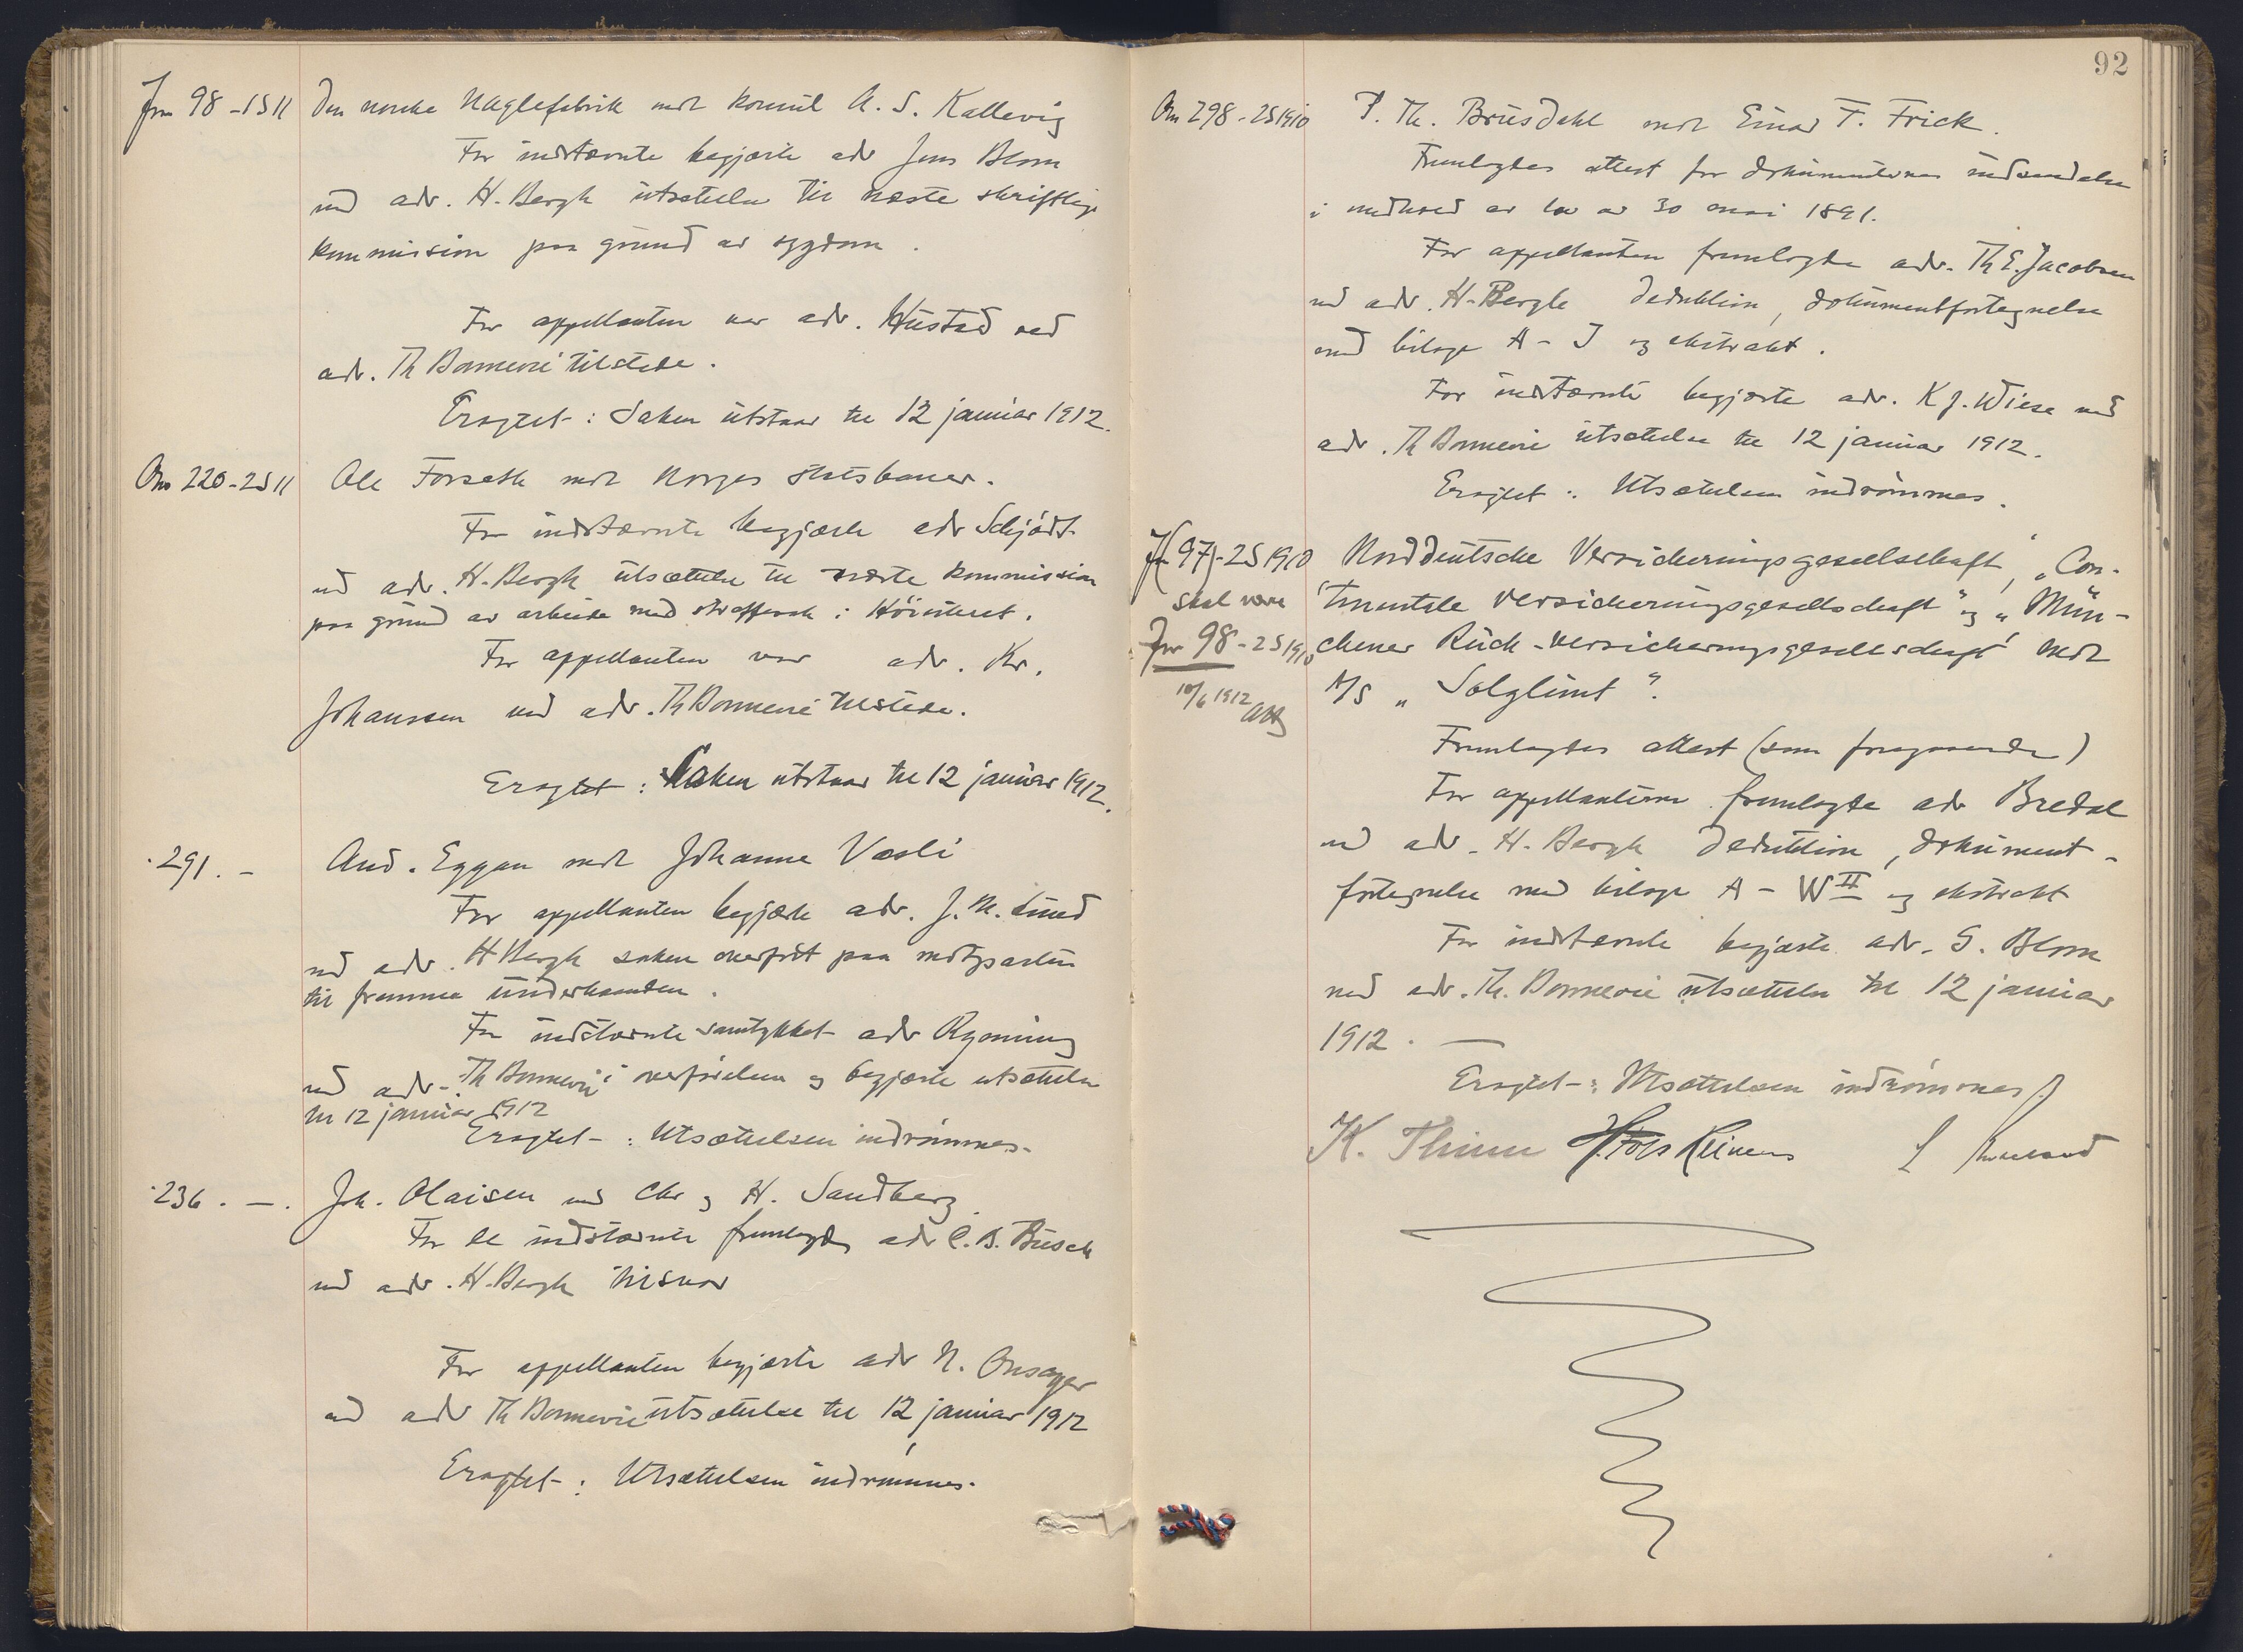 98 - 1S 11 Den norske Naglefabrik mot konsul A. S. Kallevig
For indstævnte begjærte adv Jens Blom
ved adv. H. Bergh utsættelse til næste skriftlige
kommission paa grund av sygdom.
For appellanten var adv. Hustad ved
adv. Th Bonnevie tilstede.
Eragtet: Saken utstaar til 12 januar 1912.
220 - 2S 11 Ole Forseth mot Norges Statsbaner.
For indstævnte begjærte adv Schjødt
ved adv. H. Bergh utsættelse til næste kommission
paa grund av arbeide med straffesak i Höiesteret.
For appellanten var adv. Kr.
Johanssen ved adv. Th Bonnevie tilstede.
Eragtet: Saken utstaar til 12 januar 1912.
291. - And. Eggan mot Johanna Vasli
For appellanten begjærte adv. J. M. Lund
ved adv. H Bergh saken overført paa motparten
til fremme underhaanden.
For indstævnte samtykket adv Rynning
ved adv. Th Bonnevie i overførelsen og begjærte utsættelse
til 12 januar 1912
Eragtet: Utsættelsen indrømmes.
236. - . Joh. Olaisen mot Chr og H. Sandberg.
For de indstævnte fremlagdes adv C. B. Busch
ved adv. H. Bergh tilsvar
For appellanten begjærte adv N. Onsager
ved adv Th Bonnevie utsættelse til 12 januar 1912
Eragtet: Utsættelsen indrømmes.
92
298 - 2S 1910 P. Th. Brusdahl mot Einar F. Frick.
Fremlagdes attest for dokumenternes indsendelse
i medhold av lov av 30 mai 1891.
For appellanten fremlagde adv. Th E. Jacobsen
ved adv. H. Bergh deduktion, dokumentfortegnelse
med bilage A - J og ekstrakt.
For indstævnte begjærte adv. K J. Wiese ved
adv. Th Bonnevie utsættelse til 12 januar 1912.
Eragtet: Utsættelsen indrømmes.
97) - 2S 1910 Norddeutsche Versicherungsgesellschaft, "Con-
skal være tinentale Versicherungsgesellschaft" og "Mün-
98 - 2S 1910 chener Rück-versicherungsgesellschaft" mot
10/6 1912 A/S "Solglimt".
Fremlagdes attest (som foregaaende)
For appellanterne fremlagde adv Bredal
ved adv. H. Bergh deduktion, dokument-
fortegnelse med bilage A - W II og ekstrakt
For indstævnte begjærte adv. G. Blom
ved adv. Th. Bonnevie utsættelse til 12 januar
1912. —
Eragtet: Utsættelsen indrømmes.
K. Thinn